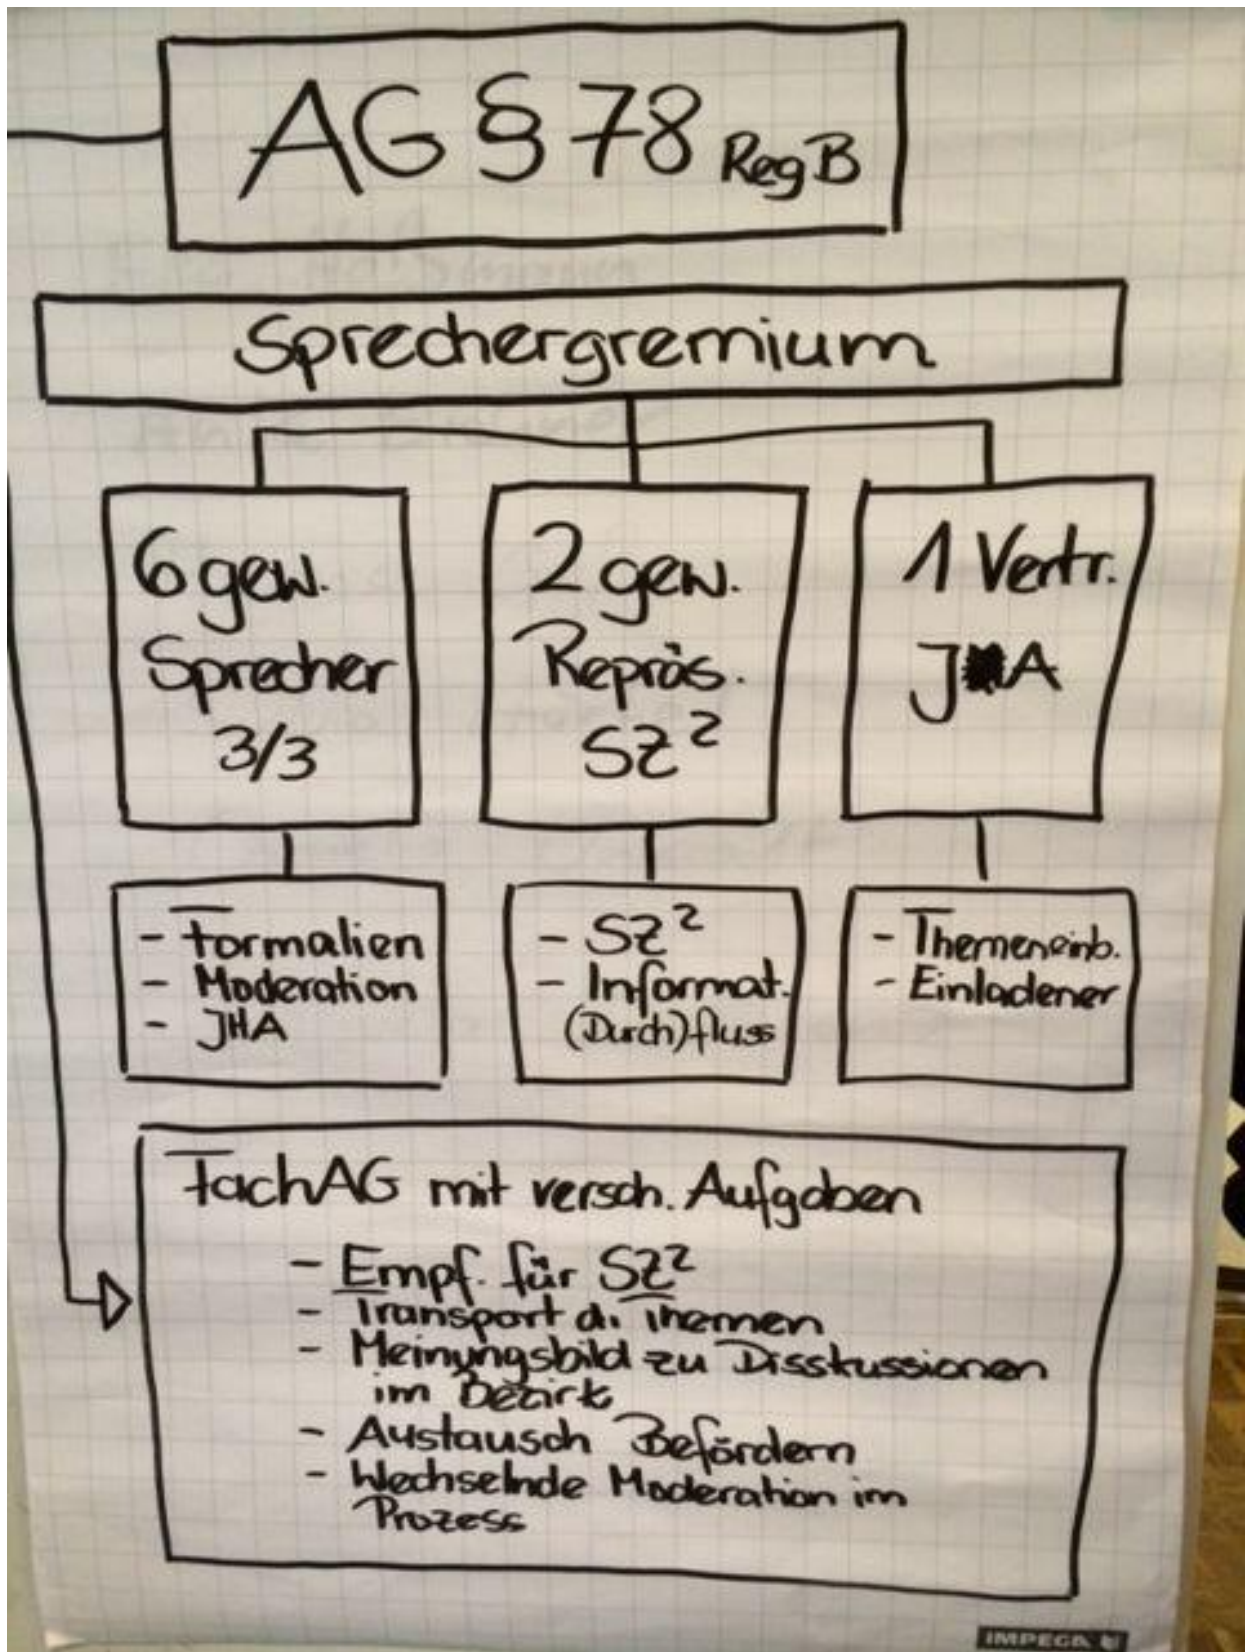 AG § 78 RegB
Sprechergremium
6 gew.
Sprecher
3/3
2 gew.
Repräs.
SZ²
1 Vertr.
J A
- Formalien
- Moderation
- JHA
- SZ²
- Informat.
(Durch)fluss
- Themeneinb.
- Einladener
FachAG mit versch. Aufgaben
- Empf. für SZ²
- Transport d. Themen
- Meinungsbild zu Disskussionen
im Bezirk
- Austausch Befördern
- Wechselnde Moderation im
Prozess
IMPEGA